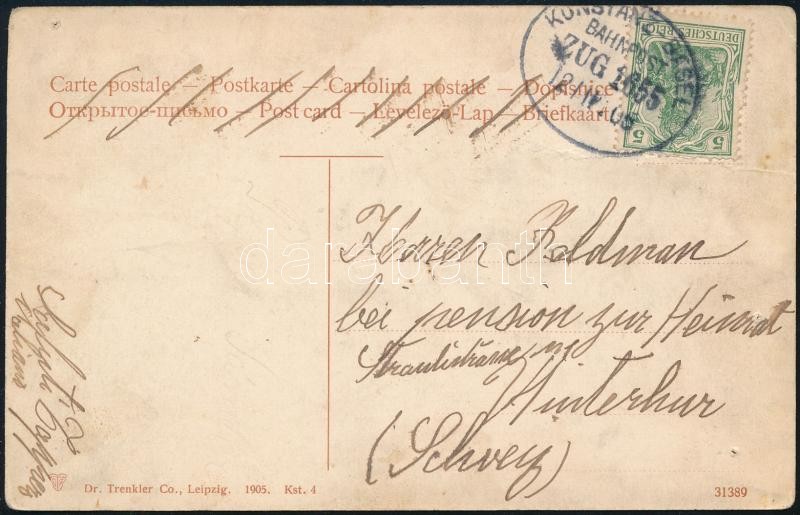 KONSTANZ BASEL
BAHNPOST
ZUG 1855
12 IV 05
DEUTSCHES REICH
5 5
Carte postale — Postkarte — Cartolina postale — Dopisnice
Открытое-письмо — Post card — Levelező-Lap — Briefkaart
Herren Feldman
bei pension zur Heimat
Winterhur
(Schweiz)
darabanth
Dr. Trenkler Co., Leipzig. 1905. Kst. 4
31389